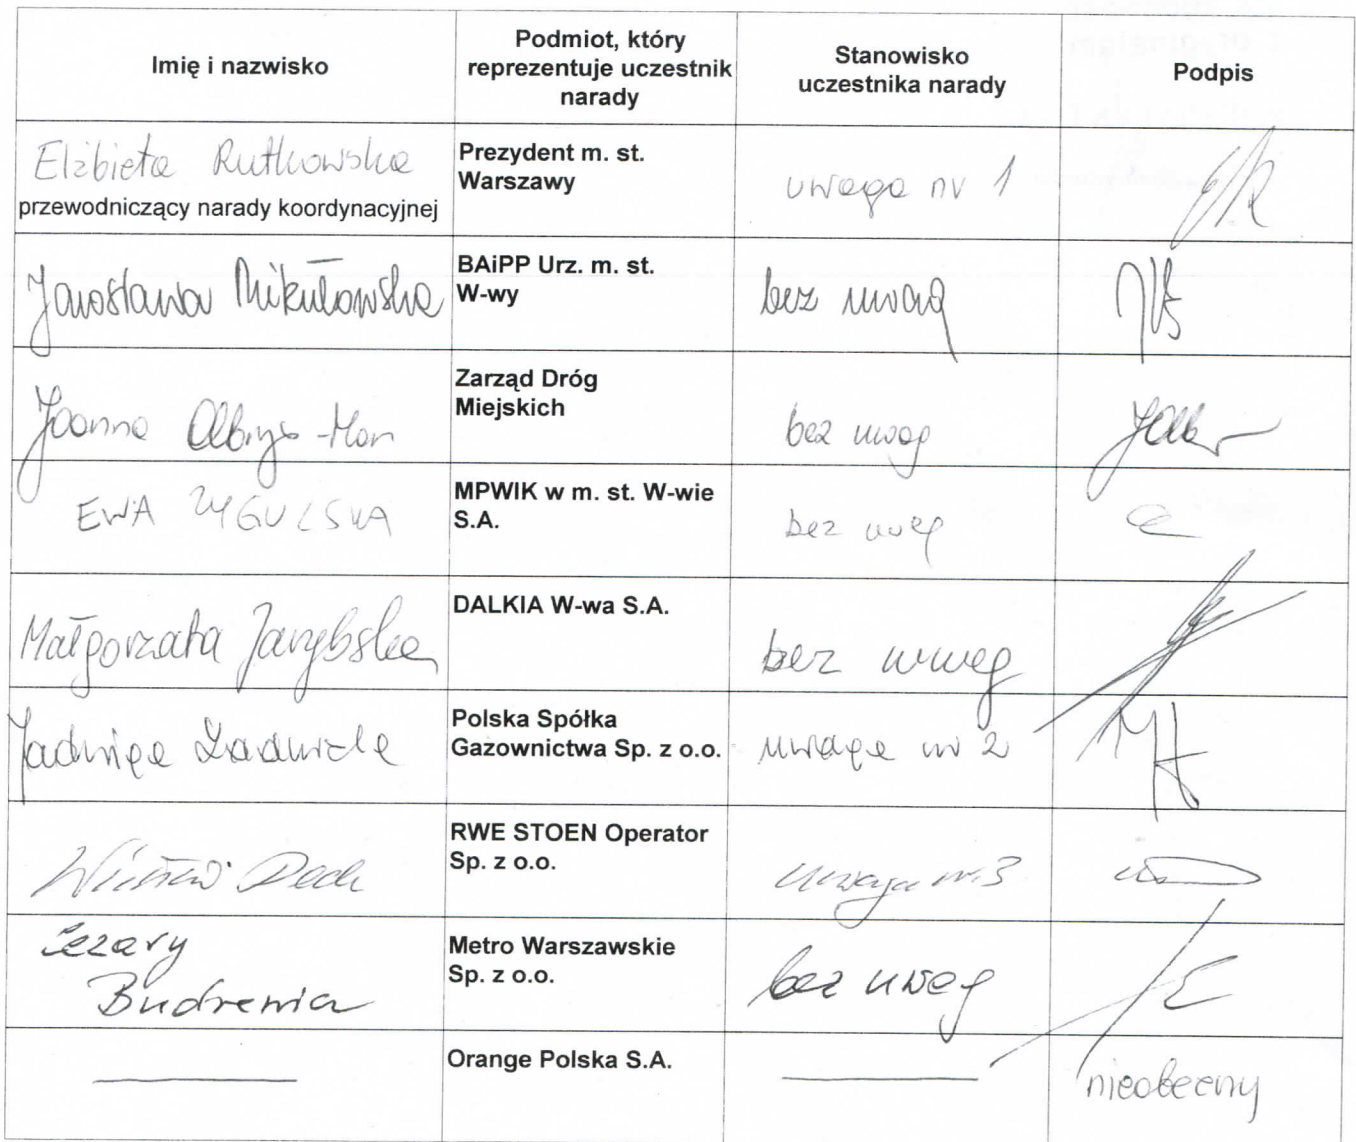 Imię i nazwisko
Podmiot, który
reprezentuje uczestnik
narady
Stanowisko
uczestnika narady
Podpis
Elżbieta Rutkowska
przewodniczący narady koordynacyjnej
Prezydent m. st.
Warszawy
uwaga nr 1
Jarosława Mikułowska
BAiPP Urz. m. st.
W-wy
bez uwag
Joanna
Zarząd Dróg
Miejskich
bez uwag
EWA
MPWIK w m. st. W-wie
S.A.
bez uwag
Małgorzata
DALKIA W-wa S.A.
bez uwag
Jadwiga
Polska Spółka
Gazownictwa Sp. z o.o.
uwaga nr 2
RWE STOEN Operator
Sp. z o.o.
uwaga nr. 3
Cezary
Metro Warszawskie
Sp. z o.o.
bez uwag
Orange Polska S.A.
nieobecny